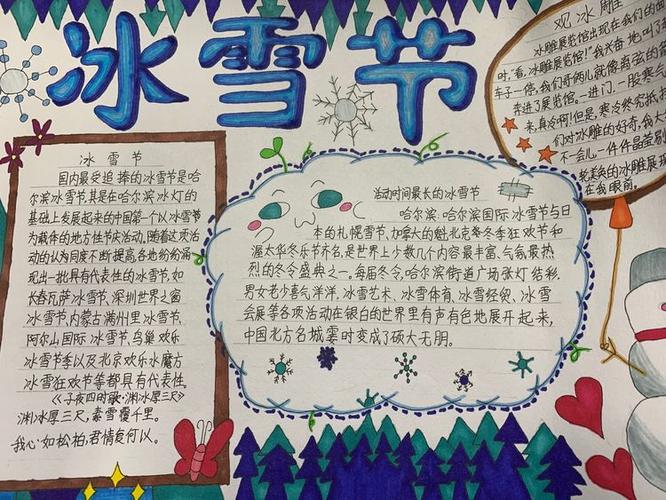 冰雪节
冰雪节
国内最受追捧的冰雪节是哈
尔滨冰雪节,其是在哈尔滨冰灯的
基础上发展起来的中国第一个以冰雪节
为载体的地方性节庆活动。随着这项活
动的认为同度不断提高各地纷纷涌
现出一批具有代表性的冰雪节,如
长春瓦萨冰雪节、深圳世界之窗
冰雪节、内蒙古满州里冰雪节、
阿尔山国际冰雪节、鸟巢欢乐
冰雪季以及北京欢乐水魔方
冰雪狂欢节等都具有代表性。
《子夜四时歌·渊冰厚三尺》
渊冰厚三尺,素雪覆千里。
我心如松柏,君情复何以。
活动时间最长的冰雪节
哈尔滨·哈尔滨国际冰雪节与日
本的札幌雪节、加拿大的魁北克冬季狂欢节和
渥太华冬乐节齐名,是世界上少数几个内容最丰富、气氛最热
烈的冬令盛典之一,每届冬令,哈尔滨街道广场张灯结彩,
男女老少喜气洋洋,冰雪艺术、冰雪体育、冰雪经贸、冰雪
会展等各项活动在银白的世界里有声有色地展开起来,
中国北方名城霎时变成了硕大无朋。
观冰雕
冰雕展览馆出现在我们的
时,"看,冰雕展览馆!"我兴奋地叫
车子一停,我们哥俩儿就像离弦的
奔进了展览馆。一进门,一股寒
来,真冷啊!但是,寒冷终究抵
们对冰雕的好奇,我
不一会儿一件件晶莹
美的冰雕展
在我眼前。